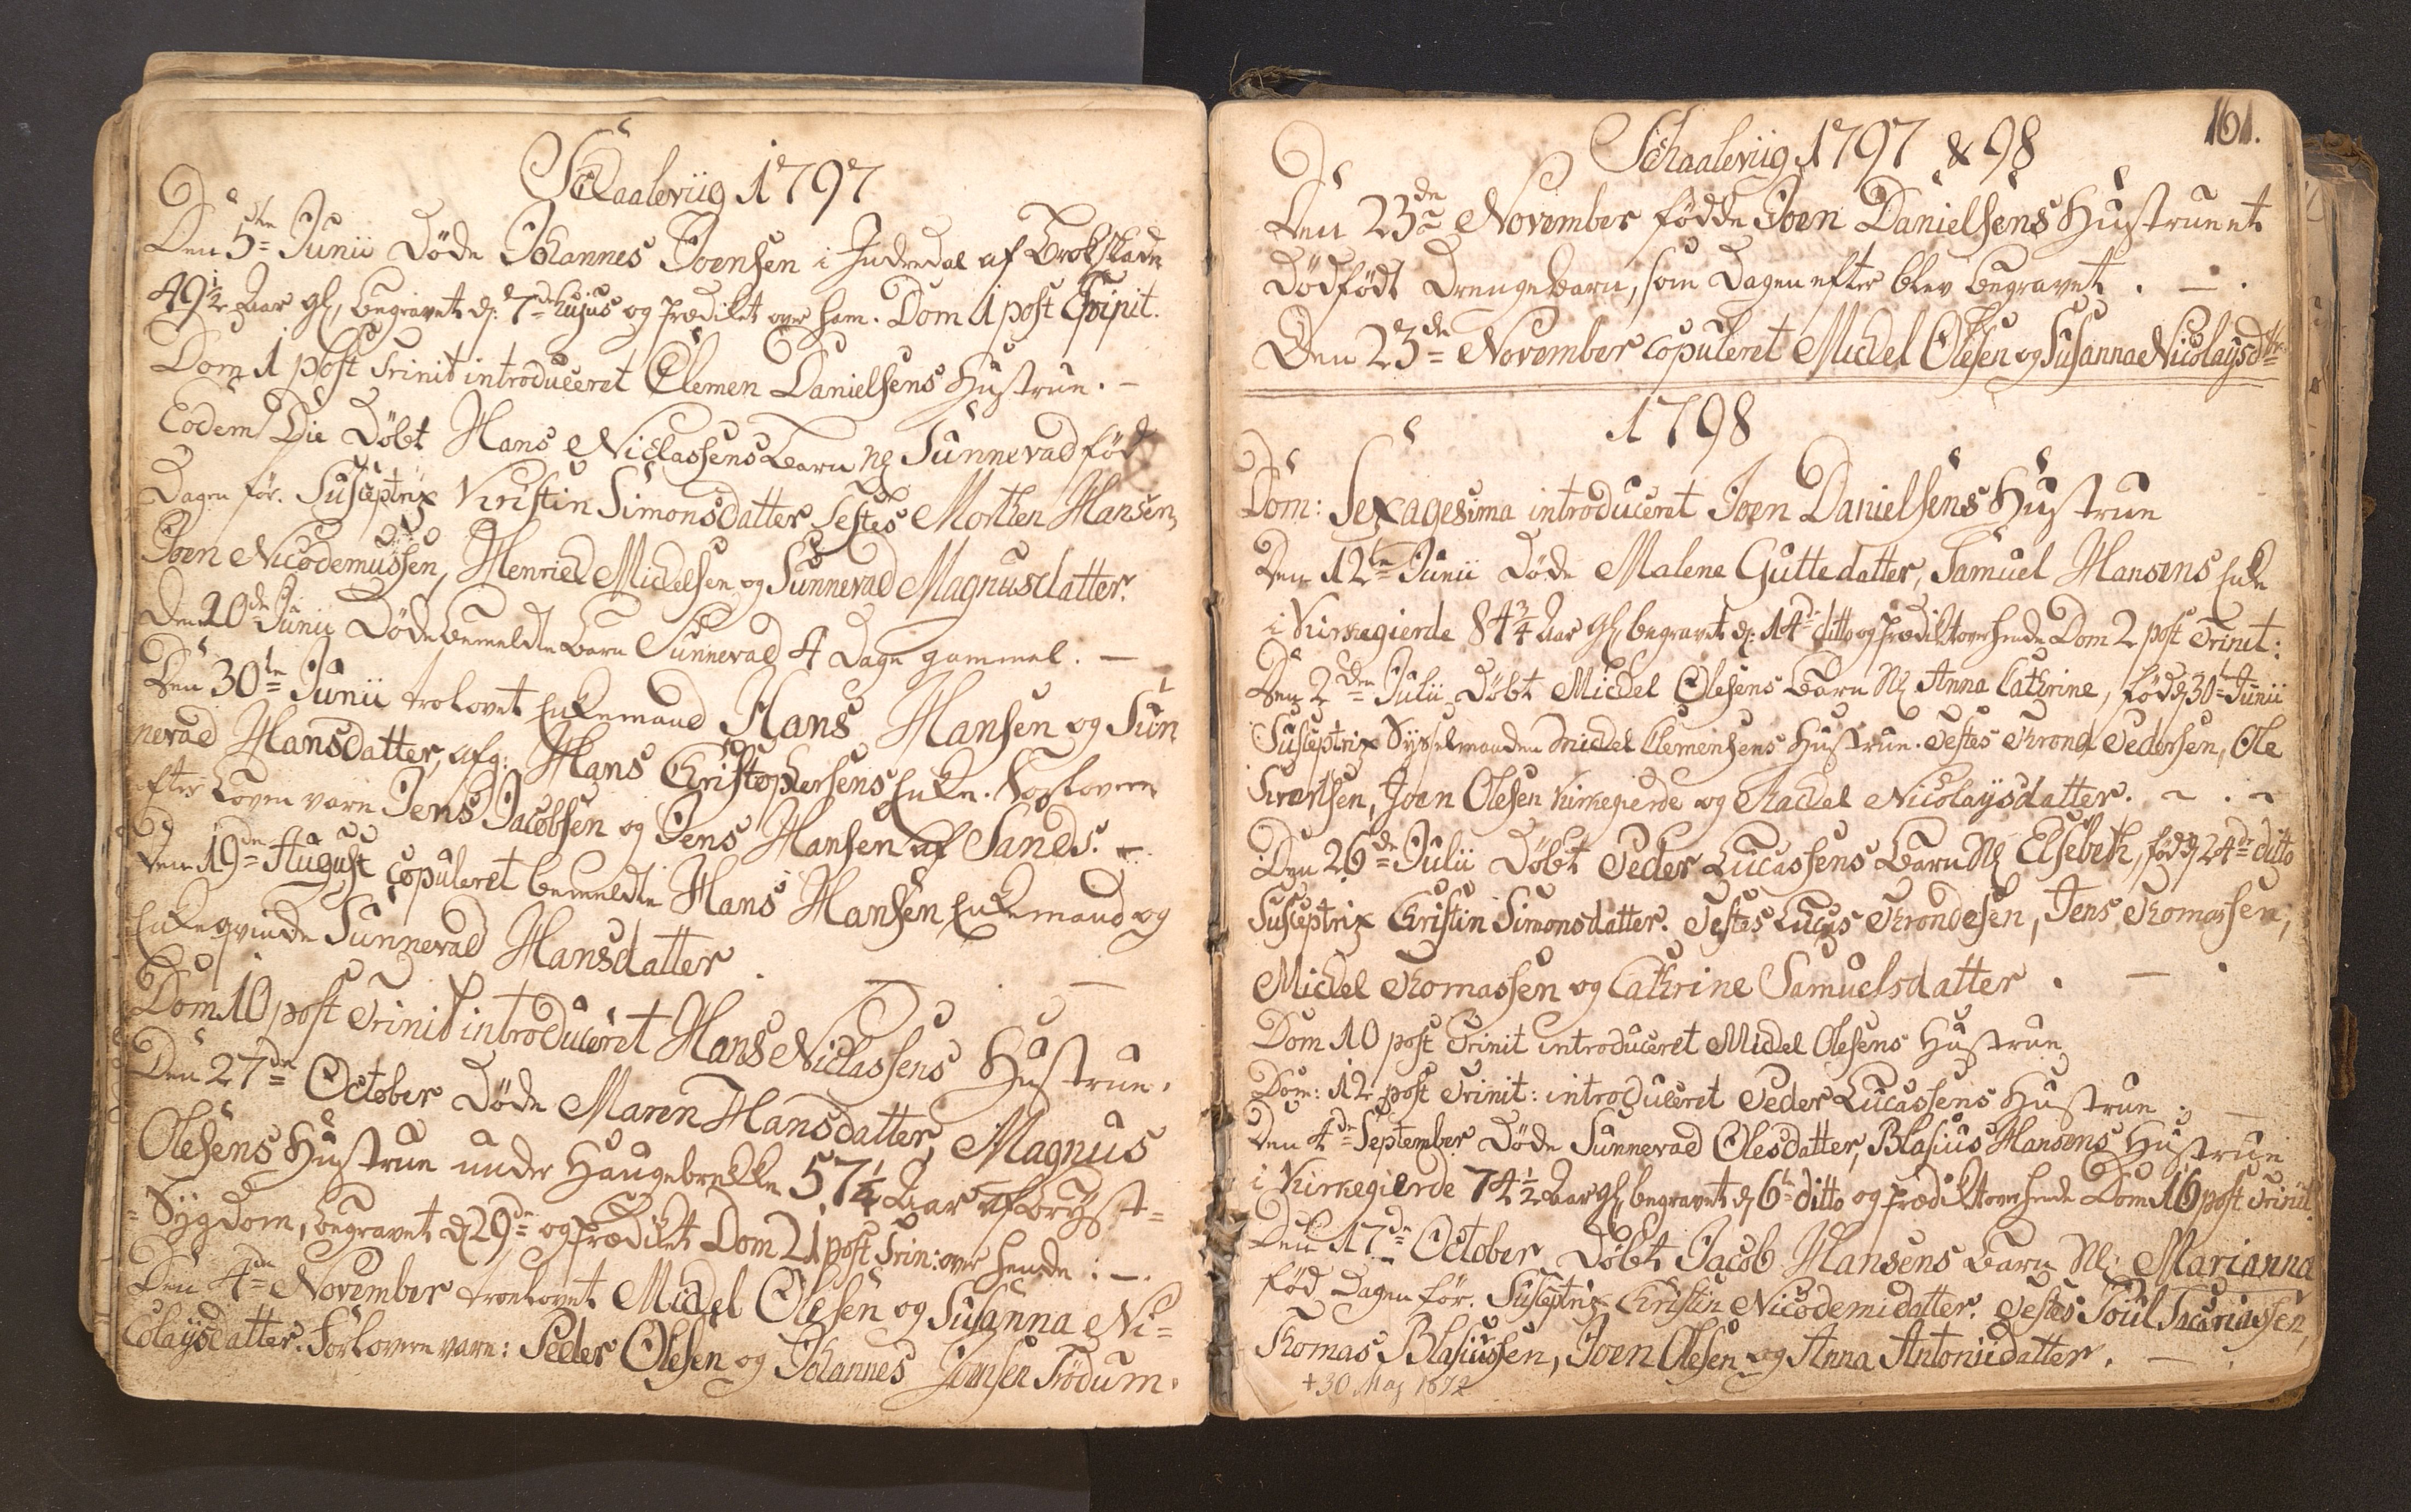 Schaaleviig 1797
Den 5te Junii døde Johannes Joensen i Indredal af Brokskade
49½ Aar gl, begravet d: 7de hujus og prædiket over ham. Dom 1 post Trinit.
Dom 1 post Trinit introduceret Clemen Danielsens Hustrue. –
Eodem Die døbt Hans Niclassens Barn Nl Sunnevad fød
Dagen før. Susceptrix Kristin Simonsdatter Testes Morthen Hansen,
Joen Nicodemussen, Henrich Michelsen og Sunnevad Magnusdatter.
den 20de Junii døde bemeldte Barn Sunnevad 4 Dage gammel. –
Den 30te Junii trolovet Enkemand Hans Hansen og Sun
nevad Hansdatter, afg: Hans Christophersens Enke. Forlovere
efter Loven vare Jens Jacobsen og Jens Hansen af Sand. –
Den 19de August copuleret bemeldte Hans Hansen Enkemand og
Enkeqvinde Sunnevad Hansdatter . – . –
Dom 10 post Trinit introduceret Hans Niclassens Hustrue.
Den 27de October døde Maren Hansdatter, Magnus
Olesens Hustrue under Haugebrekke 57¼ Aar af Bryst=
=Sygdom, begravet d 29de og prædiket Dom 21 post Trin: over hende : –.
Den 4de November troelovet Michel Olesen og Susanna Ni=
colaysdatter. Forlovere vare: Peder Olesen og Johannes Joensen Trödum.
161.
Schaaleviig 1797 & 98
Den 23de November fødde Joen Danielsens Hustrue et
dødfødt Drengebarn, som Dagen efter blev begravet . – .
Den 23de November copuleret Michel Olesen og Susanna Nicolaysdtr
1798
Dom: Sexagesima introduceret Joen Danielsens Hustrue
Den 12te Junii døde Malene Guttedatter, Samuel Hansens Enke
i Kirkegierde 84¾ Aar gl, begravet d: 14de ditto og prædiket over hende Dom 2 post Trinit:
Den 2den Julii døbt Michel Olesens Barn Nl Anna Cathrine, fød d 30te Junii
Susceptrix Sysselmanden Michel Clemensens Hustrue. Testes Trond Pedersen, Ole
Sivertsen, Joen Olesen Kirkegierde og Rachel Nicolaysdatter. – . –
Den 26de Julii døbt Peder Lucassens Barn Nl Elsebeth, fød d 24de ditto
Susceptrix Christin Simonsdatter. Testes Lucas Trondesen, Jens Thomassen,
Michel Thomassen og Cathrine Samuelsdatter . – .
Dom 10 post Trinit introduceret Michel Olesens Hustrue
Dom: 12 post Trinit: introduceret Peder Lucassens Hustrue . –
Den 4de September døde Sunnevad Olesdatter, Blasius Hansens Hustrue
i Kirkegierde 74½ Aar gl, begravet d 6te ditto og prædiket over hende Dom 16 post Trinit.
Den 17de October døbt Jacob Hansens Barn Nl: Marianna
fød Dagen før. Susceptrix Christin Nicodemidatter. Testes Poul Sacariassen,
Thomas Blasiussen, Joen Olesen og Anna Antoniidatter . – .
+30 Maj 1872